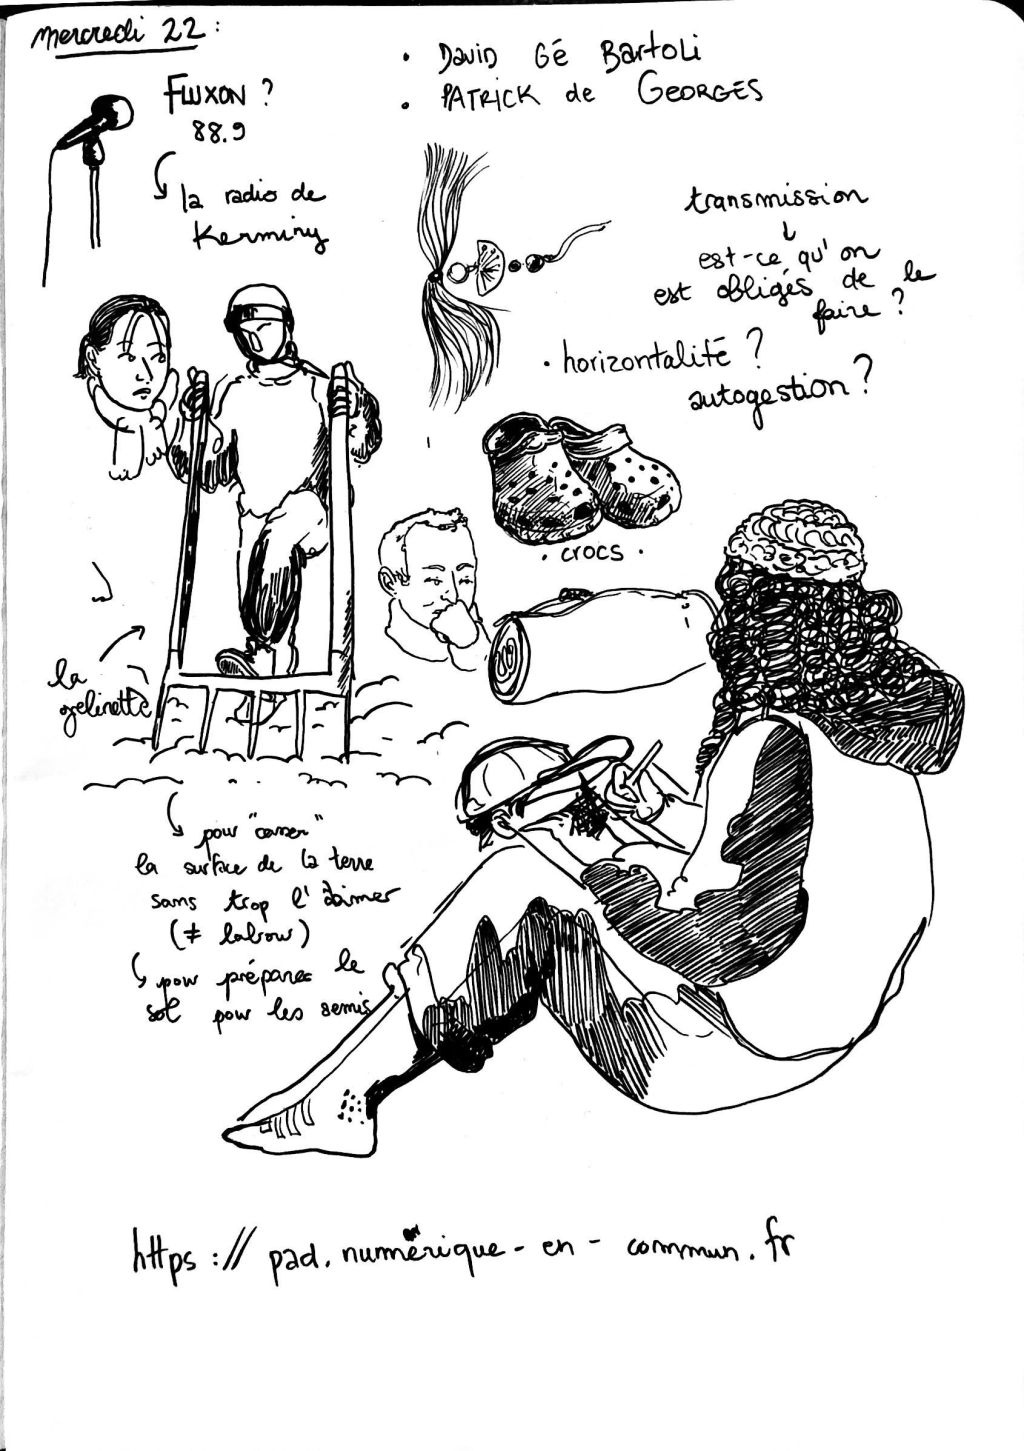 mercredi 22 :
• DAVID Gé Bartoli
• PATRICK de GEORGES
FLUXON ?
88.9
la radio de
Kerminy
transmission
est-ce qu'on
est obligés de le
faire ?
• horizontalité ?
autogestion ?
• crocs •
la
gelinette
pour "casser"
la surface de la terre
sans trop l'abimer
(≠ labour)
pour préparer le
sol pour les semis
https://pad.numérique-en-commun.fr